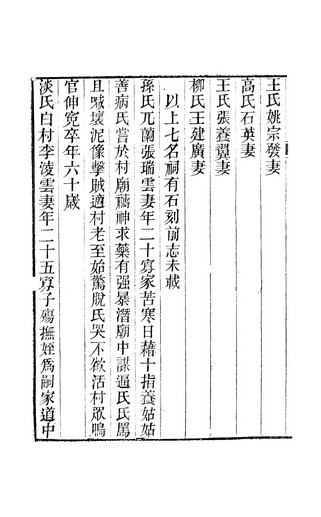 王氏姚宗發妻
高氏石英妻
王氏張養翼妻
柳氏王建廣妻
以上七名祠有石刻前志未載
孫氏兀蘭張瑞雲妻年二十寡家苦寒日藉十指養姑姑
善病氏嘗於村廟禱神求藥有强暴潛廟中謀逼氏氏罵
且喊壞泥像擊賊適村老至始驚脫氏哭不欲活村眾鳴
官伸寃卒年六十歲
淡氏白村李淩雲妻年二十五寡子殤撫姪爲嗣家道中